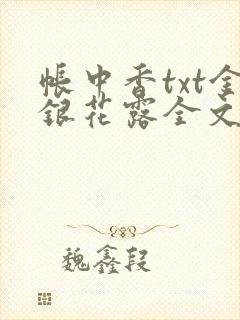 帐中香txt金
银花露全文
魏鑫段